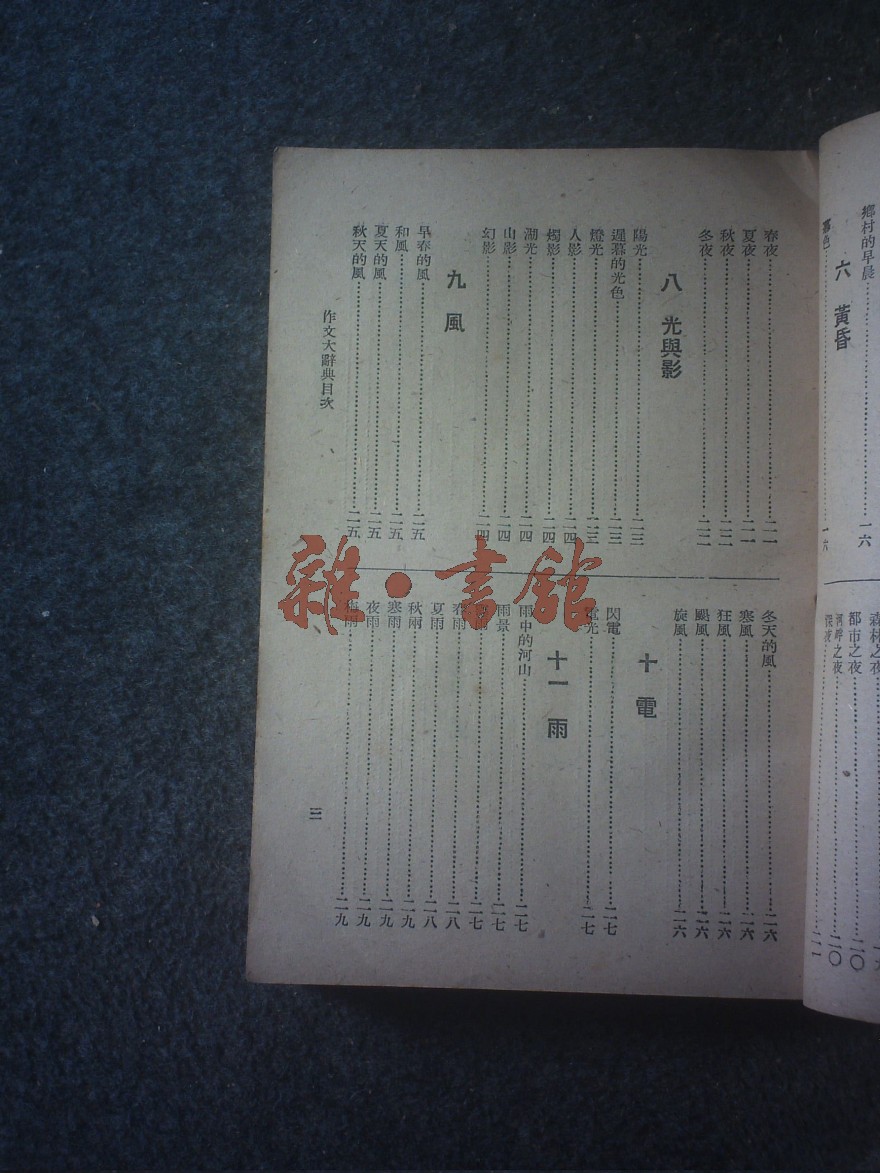 鄉村的早晨……一六
六 黃昏
暮色……一六
森林之夜
都市之夜……二〇
河畔之夜……二〇
深夜
春夜……二一
夏夜……二一
秋夜……二二
冬夜……二二
八 光與影
陽光……二三
遲慕的光色……二三
燈光……二三
人影……二四
燭影……二四
湖光……二四
山影……二四
幻影……二四
九 風
早春的風……二五
和風……二五
夏天的風……二五
秋天的風……二五
冬天的風……二六
寒風……二六
狂風……二六
颶風……二六
旋風……二六
十 電
閃電……二七
電光……二七
十一 雨
雨中的河山……二七
雨景……二七
二七
春雨……二八
夏雨……二八
秋雨……二九
寒雨……二九
夜雨……二九
梅雨……二九
作文大辭典目次
三
雜·書館